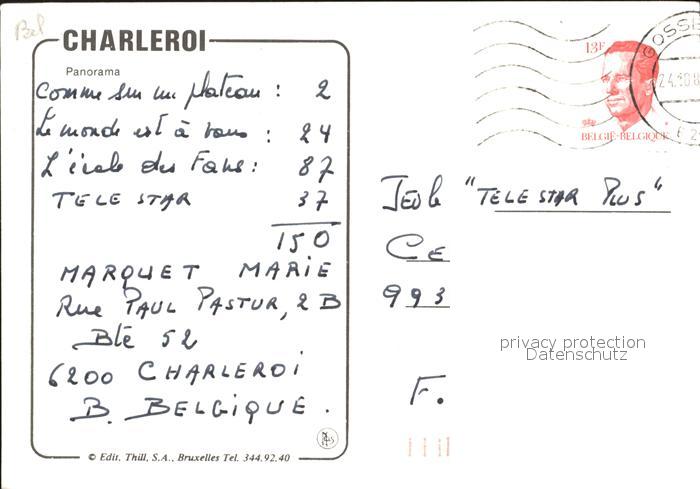 Bel
CHARLEROI
Panorama
Comme sur un plateau : 2
Le monde est à vous : 24
L'école des Fans : 87
TELE STAR 37
150
MARQUET MARIE
Rue PAUL PASTUR, 2 B
Bte 52
6200 CHARLEROI
B. BELGIQUE.
© Edit. Thill, S.A., Bruxelles Tel. 344.92.40
13F
BELGIË-BELGIQUE
GOSSE
Jeu le "TELE STAR PLUS"
CE
993
F.
privacy protection
Datenschutz